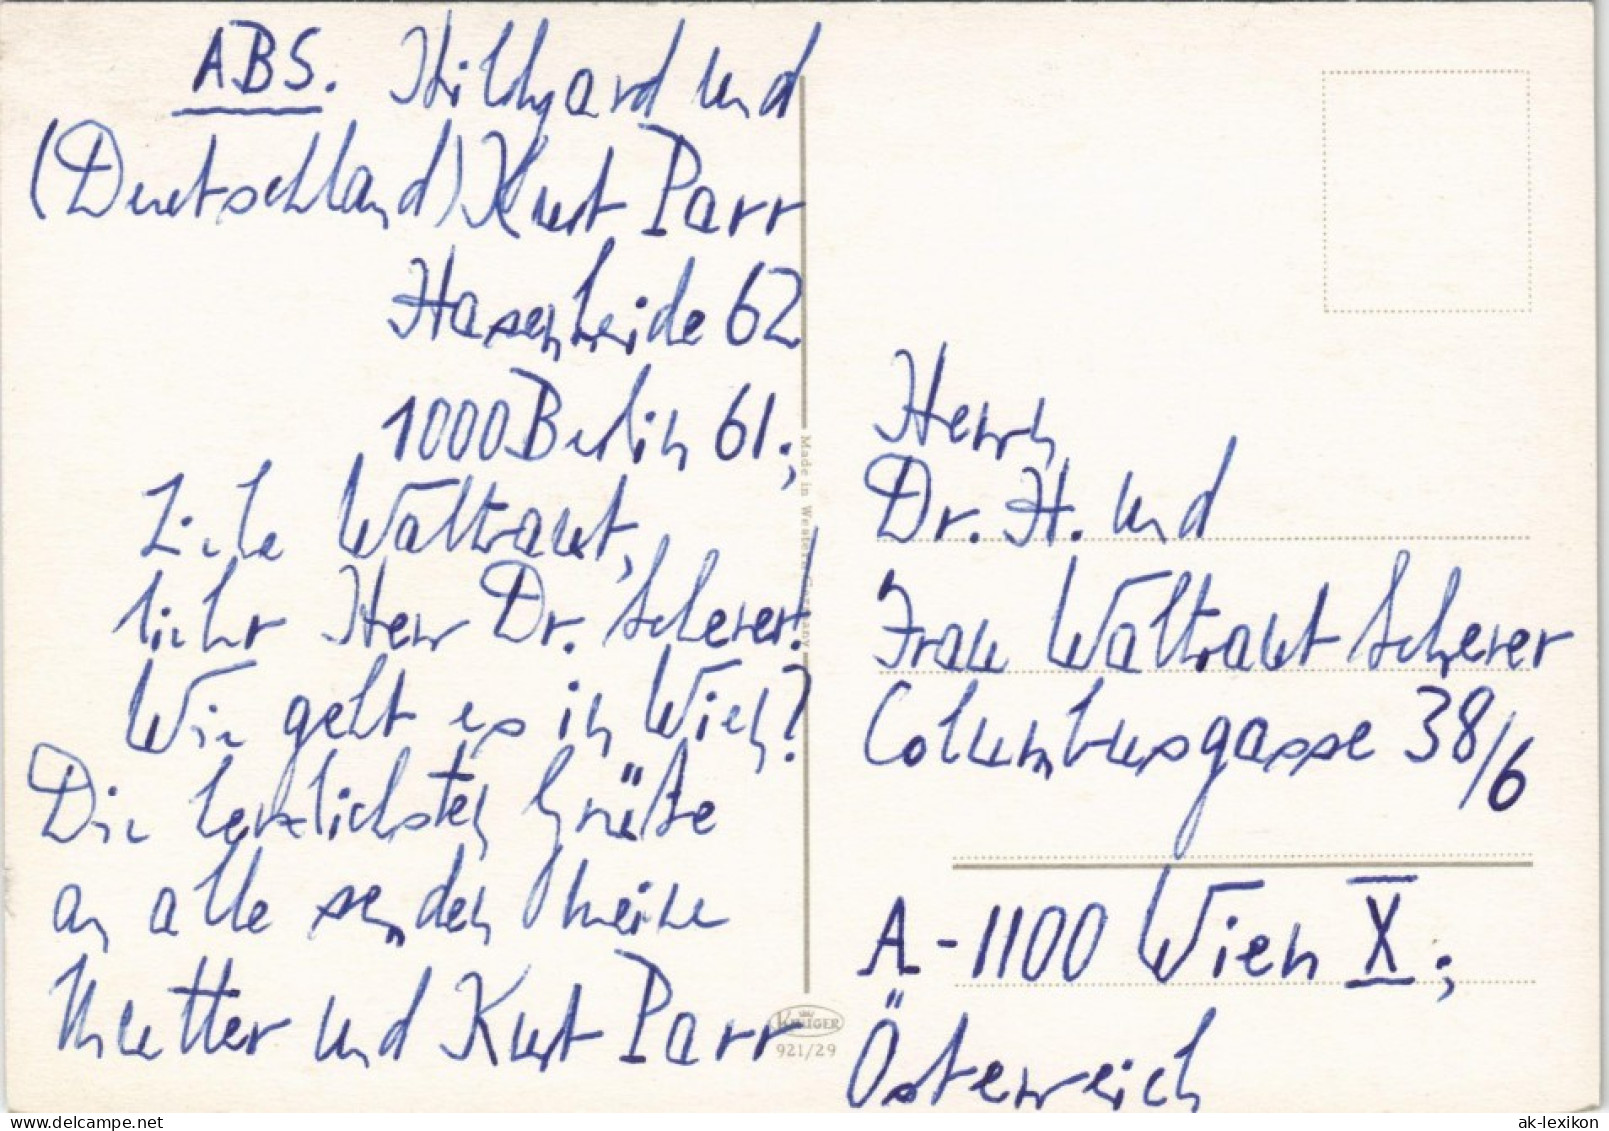 ABS. Hildegard und
(Deutschland) Kurt Parr
Hasenheide 62
1000 Berlin 61.;
Liebe Waltraut,
lieber Herr Dr. Scherer!
Wie geht es in Wien?
Die herzlichsten Grüße
an alle senden meine
Mutter und Kurt Parr
Made in Western Germany
KRÜGER
921/29
Herrn
Dr. H. und
Frau Waltraut Scherer
Columbusgasse 38/6
A-1100 Wien X;
Österreich
ak-lexikon